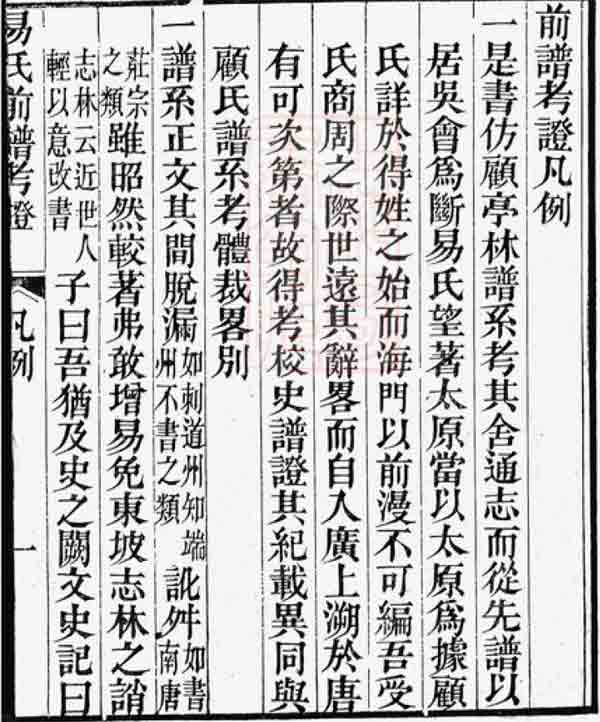 前譜考證凡例
一是書仿顧亭林譜系考其舍通志而從先譜以
居吳會爲斷易氏望著太原當以太原爲據顧
氏詳於得姓之始而海門以前漫不可編吾受
氏商周之際世遠其辭畧而自入廣上溯於唐
有可次第者故得考校史譜證其紀載異同與
顧氏譜系考體裁畧別
一譜系正文其間脫漏如刺道州知端州不書之類訛舛如書南唐
莊宗之類雖昭然較著弗敢增易免東坡志林之誚
志林云近世人輕以意改書子曰吾猶及史之闕文史記曰
易氏前譜考證 凡例 一